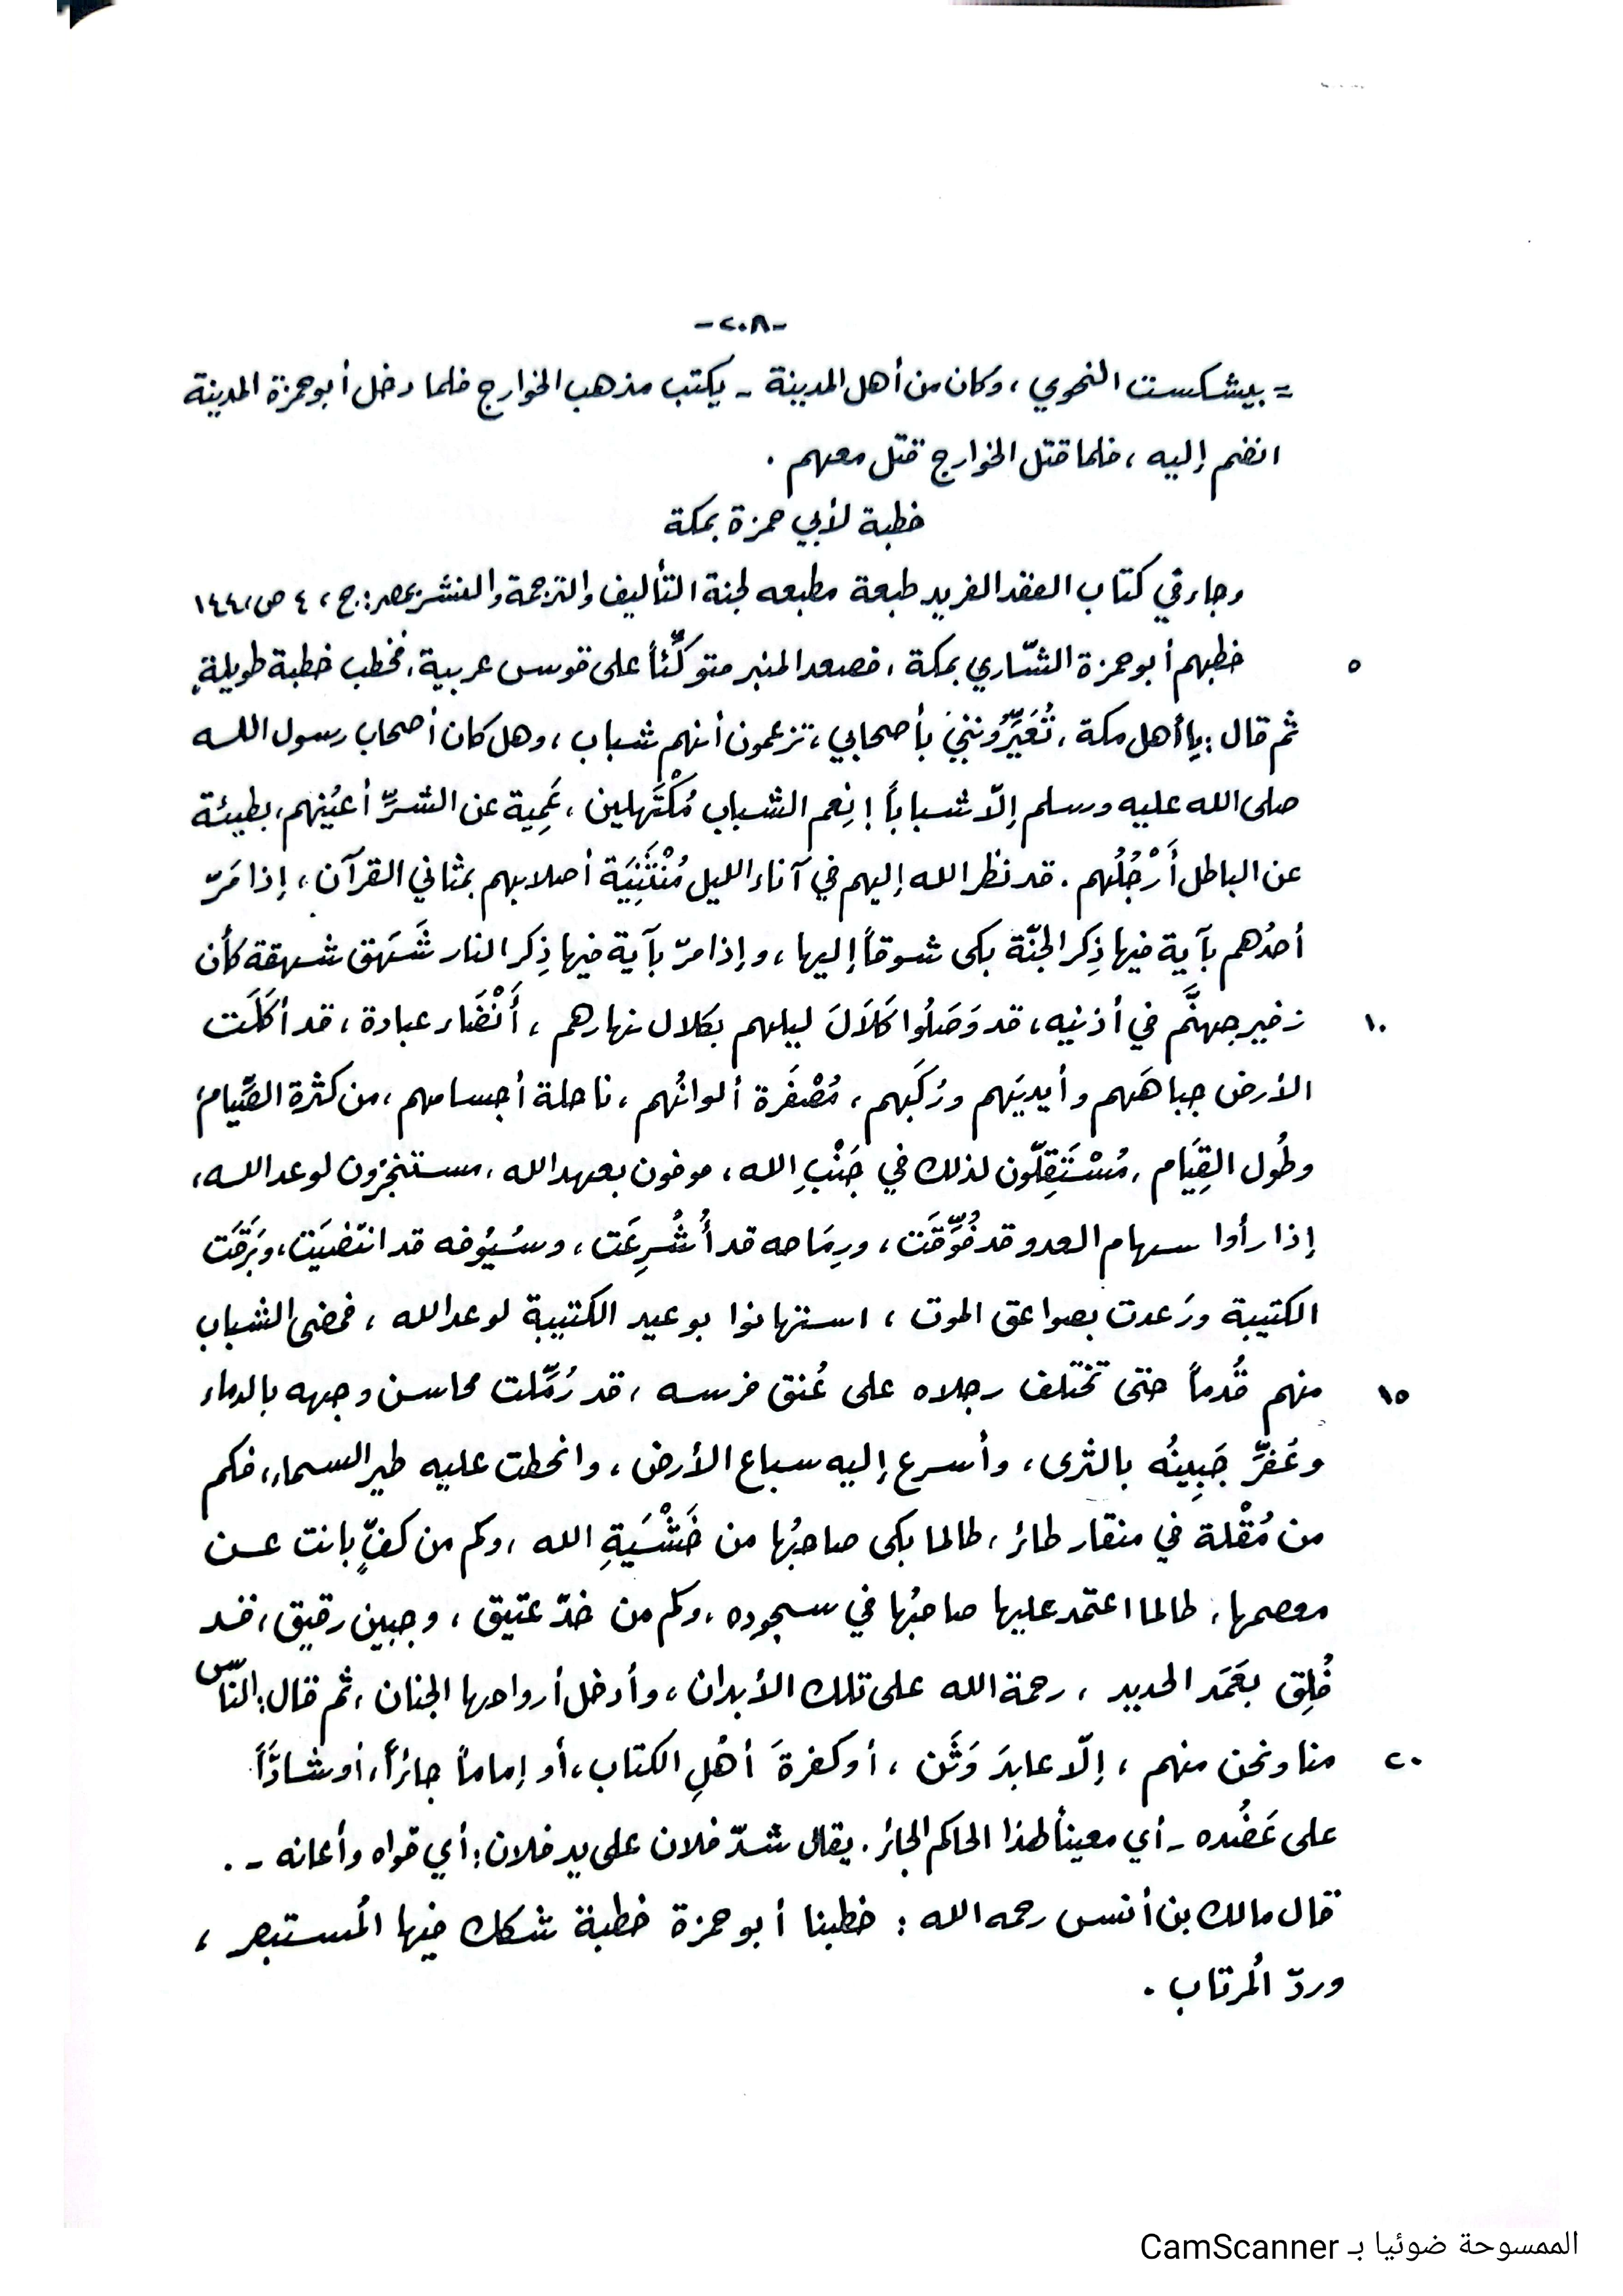 -٢٠٨-
= بيشكست النحوي ، وكان من أهل المدينة - يكتب مذهب الخوارج فلما دخل أبو حمزة المدينة
انضم إليه ، فلما قتل الخوارج قتل معهم .
خطبة لأبي حمزة بمكة
وجاء في كتاب العقد الفريد طبعة مطبعه لجنة التأليف والترجمة والنشر بمصر : ج ، ٤ ص ، ١٤٤
٥ خطبهم أبو حمزة الشّاري بمكة ، فصعد المنبر متوكِّئاً على قوس عربية ، فخطب خطبة طويلةٍ
ثم قال : يا أهل مكة ، تُعَيِّرُونني بأصحابي ، تزعمون أنهم شباب ، وهل كان أصحاب رسول الله
صلى الله عليه وسلم إلّا شباباً ! نِعم الشباب مُكْتَهلين ، عَمِية عن الشرِّ أعيُنهم ، بطيئة
عن الباطل أَرْجُلُهم . قد نظر الله إليهم في آناء الليل مُنْثَنِيَة أصلابهم بمثاني القرآن ، إذا مَرّ
أحدُهم بآية فيها ذِكر الجنّة بكى شوقاً إليها ، وإذا مرّ بآية فيها ذِكر النار شَهَق شهقة كأن
١٠ زفير جهنَّم في أذنيه ، قد وَصَلُوا كَلَالَ ليلهم بكلال نهارهم ، أَنْضَاء عبادة ، قد أكَلَت
الأرض جباهَهم وأيديَهم ورُكَبهم ، مُصْفَرة ألوانُهم ، ناحلة أجسامهم ، من كثرة الصِّيام
وطُول القِيَام ، مُسْتَقِلّون لذلك في جَنْبِ الله ، موفون بعهد الله ، مستنجزون لوعد الله ،
إذا رأوا سهام العدو قد فُوِّقَت ، ورِمَاحه قد أُشْرِعَت ، وسُيُوفه قد انتضيَت ، وبَرَقَت
الكتيبة ورَعدت بصواعق الموت ، استهانوا بوعيد الكتيبة لوعد الله ، فمضى الشباب
١٥ منهم قُدماً حتى تختلف رجلاه على عُنق فرسه ، قد رُمِّلت محاسن وجهه بالدماء
وعُفرِّ جَبِينُه بالثرى ، وأسرع إليه سباع الأرض ، وانحطت عليه طير السماء ، فكم
من مُقْلة في منقار طائر ، طالما بكى صاحبُها من خَشْيَةِ الله ، وكم من كفٍّ بانت عن
معصمها ، طالما اعتمد عليها صاحبُها في سجوده ، وكم من خدّ عتيق ، وجبين رقيق ، قد
فُلِق بعَمَد الحديد ، رحمة الله على تلك الأبدان ، وأدخل أرواحها الجنان ، ثم قال : النّاس
٢٠ منا ونحن منهم ، إلّا عابدَ وَثَن ، أو كفرةَ أهْلِ الكتاب ، أو إماماً جائراً ، أو شادّاً
على عَضُده - أي معيناً لهذا الحاكم الجائر . يقال شدّ فلان على يد فلان : أي قواه وأعانه - .
قال مالك بن أنس رحمه الله : خطبنا أبو حمزة خطبة شكك فيها المُستبصر ،
وردّ المُرتاب .
الممسوحة ضوئيا بـ CamScanner